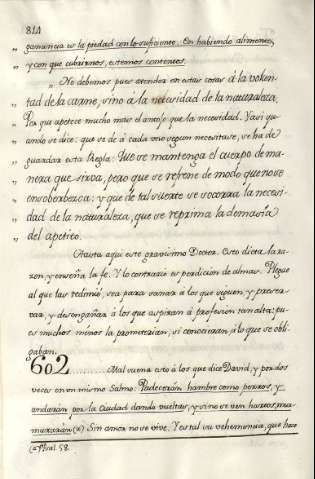 814
„ gamancia es la piedad con lo suficiente. En habiendo alimentos,
„ y con que cubrirnos, estemos contentos.
„ No debemos pues atender en estas cosas á la volun-
tad de la carne, sino á la necesidad de la naturaleza,
Por que apetece mucho mas el antojo que la necesidad. Y asi qu
ando se dice: que se dé á cada uno segun necesitare, se ha de
guardar esta Regla: Que se mantenga el cuerpo de ma-
nera que sirva, pero que se refrene de modo que no se
ensoberbezca: y que de tal suerte se socorra la necesi-
dad de la naturaleza, que se reprima la demasía
del apetito.
Hasta aquí este gravísimo Doctor. Esto dicta la ra-
zon, y enseña la fe. Y lo contrario es perdicion de almas. Plegue
al que las redimió, sea para sanar á los que siguen, y preser-
var, y desengañar á los que aspiran á profesion tan alta; pu-
es muchos menos la prometerían, si conocieran á lo que se obli-
gaban.
602 ......... Mal suena esto á los que dice David, y por dos
veces en un mismo Salmo: Padecerán hambre como perros, y
andarán por la Ciudad dando vueltas, y si no se ven hartos, mur
murarán (a) Sin amor no se vive. Y es tal su vehemencia, que hace
(a) Psal. 58.